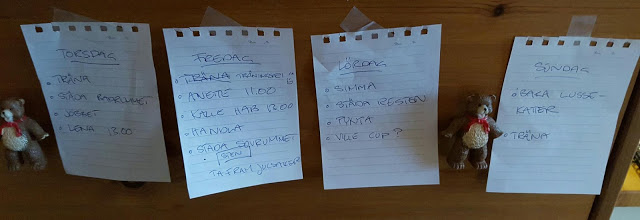 TORSDAG
TRÄNA
STÄDA BADRUMMET
JOBBET
LENA 12.00
FREDAG
TRÄNA
ANETTE 11.00
KALLE HAIR 12.00
HANDLA
STÄDA SOVRUMMET
TA FRAM JULSAKER?
LÖRDAG
SIMMA
STÄDA RESTEN
PYNTA
VILLE CUP?
SÖNDAG
BAKA LUSSE-
KATTER
TRÄNA